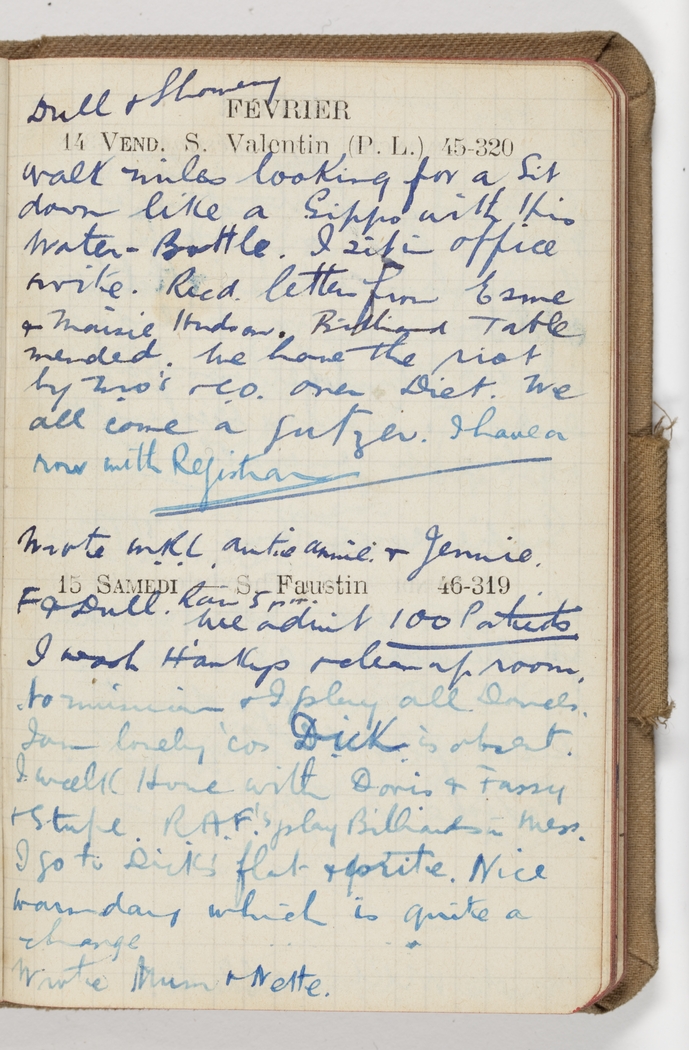 Dull & Showery
FÉVRIER
14 VEND. S. Valentin (P. L.) 45-320
walk miles looking for a Sit
down like a Gippo with his
Water-Bottle. I sit in office
write. Recd. letters from Esme
& Maisie Hudson. Billiard Table
mended. We have the riot
by Mo's & CO. over Diet. We
all come a gutzer. I have a
row with Registrar
Wrote Annie. & Jennie.
15 SAMEDI — S. Faustin 46-319
F & Dull. Rain 5 pm.
We admit 100 Patients
I wash Hankys & clean up room.
No musician & I play all Dances.
I am lonely 'cos Dick is absent.
I walk Home with Doris & Fassy
& Stupe. R.A.F.'s play Billiards in Mess.
I go to Dick's flat & write. Nice
warm day which is quite a
change
Wrote Mum & Nette.